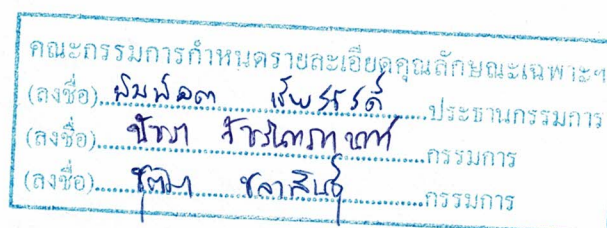 คณะกรรมการกำหนดรายละเอียดคุณลักษณะเฉพาะฯ
(ลงชื่อ) พิมพ์ลดา ประธานกรรมการ
(ลงชื่อ) กรรมการ
(ลงชื่อ) ชุติมา ชลาสินธุ์ กรรมการ